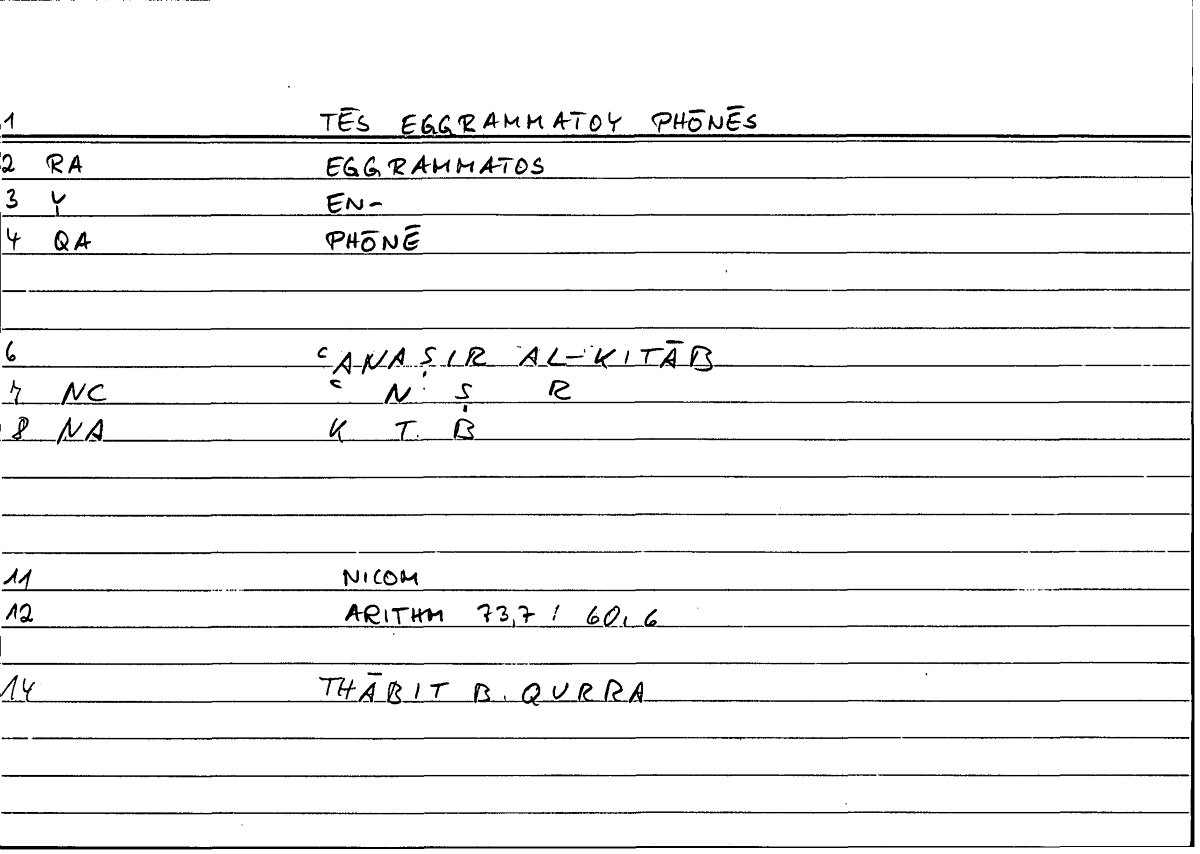 1 TĒS EGGRAMMATOY PHŌNĒS
2 RA EGGRAMMATOS
3 Y EN-
4 QA PHŌNĒ
6 ʿANAṢIR AL-KITĀB
7 NC ʿ N Ṣ R
8 NA K T B
11 NICOM
12 ARITHM 73,7 / 60,6
14 THĀBIT B. QURRA